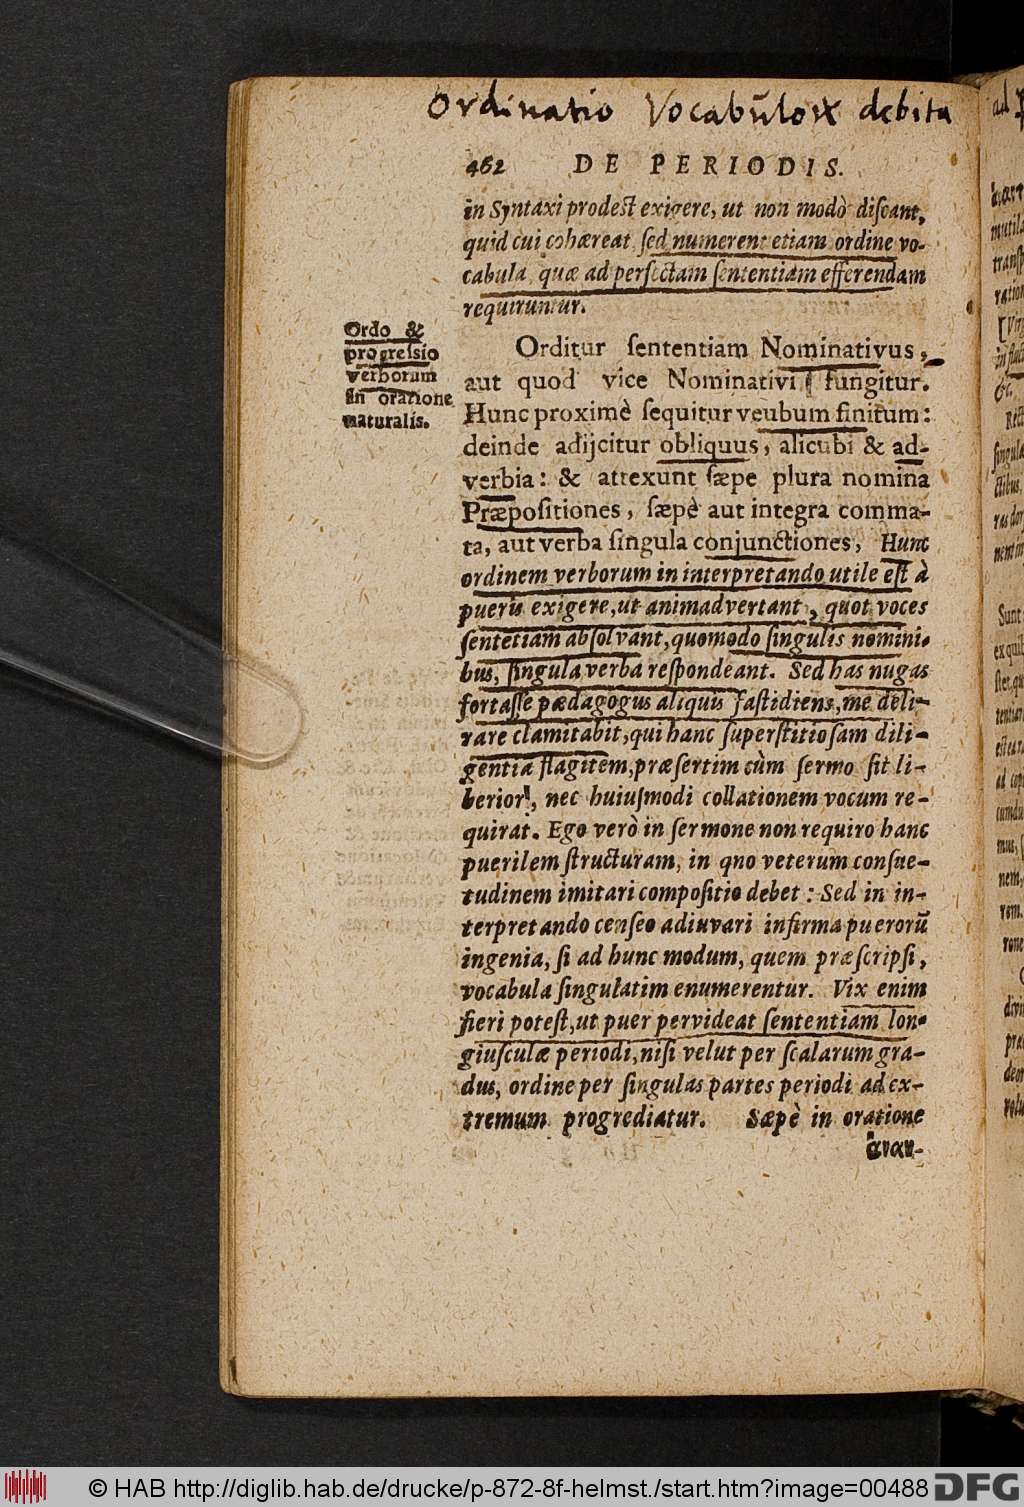 Ordinatio Vocabūloꝝ debita
462 DE PERIODIS.
in Syntaxi prodest exigere, ut non modò discant,
quid cui cohæreat sed numerent etiam ordine vo-
cabula quæ ad perfectam sententiam efferendam
requiruntur.
Ordo &
progressio
verborum
in oratione
naturalis.
Orditur sententiam Nominativus,
aut quod vice Nominativi fungitur.
Hunc proximè sequitur veubum finitum:
deinde adijcitur obliquus, alicubi & ad-
verbia: & attexunt sæpe plura nomina
Præpositiones, sæpè aut integra comma-
ta, aut verba singula conjunctiones, Hunc
ordinem verborum in interpretando utile est à
pueris exigere, ut animadvertant, quot voces
sentetiam absolvant, quomodo singulis nomini-
bus, singula verba respondeant. Sed has nugas
fortasse pædagogus aliquis fastidiens, me deli-
rare clamitabit, qui hanc superstitiosam dili-
gentia flagitem, præsertim cùm sermo sit li-
berior, nec huiusmodi collationem vocum re-
quirat. Ego verò in sermone non requiro hanc
puerilem structuram, in qno veterum consue-
tudinem imitari compositio debet: Sed in in-
terpretando censeo adiuvari infirma puerorū
ingenia, si ad hunc modum, quem præscripsi,
vocabula singulatim enumerentur. Vix enim
fieri potest, ut puer pervideat sententiam lon-
giusculæ periodi, nisi velut per scalarum gra-
dus, ordine per singulas partes periodi ad ex-
tremum progrediatur. Sæpè in oratione
ἀναν-
© HAB http://diglib.hab.de/drucke/p-872-8f-helmst./start.htm?image=00488 DFG